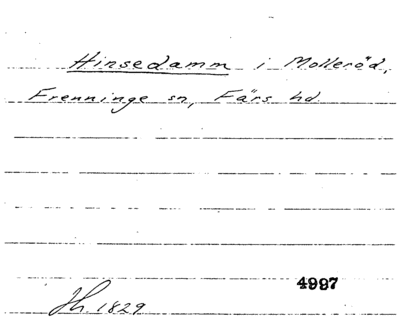 Hinsedamm i Molleröd,
Frenninge sn, Färs hd
4997
Jh. 1829